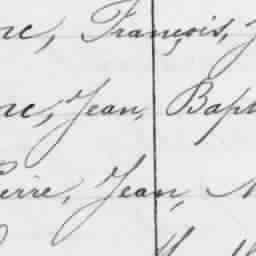 ne, François, J
ne, Jean, Bapt
Pierre, Jean, M